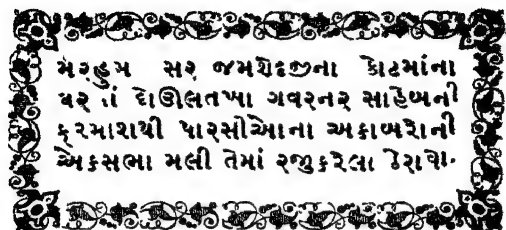 મરહુમ સર જમશેદજીના કોટમાંના
ઘર તાં દોઊલતખા ગવરનર સાહેબની
ફરમાશથી પારસીઓના અકાબરોની
એકસભા મલી તેમાં રજુકરેલા ઠેરાવો.